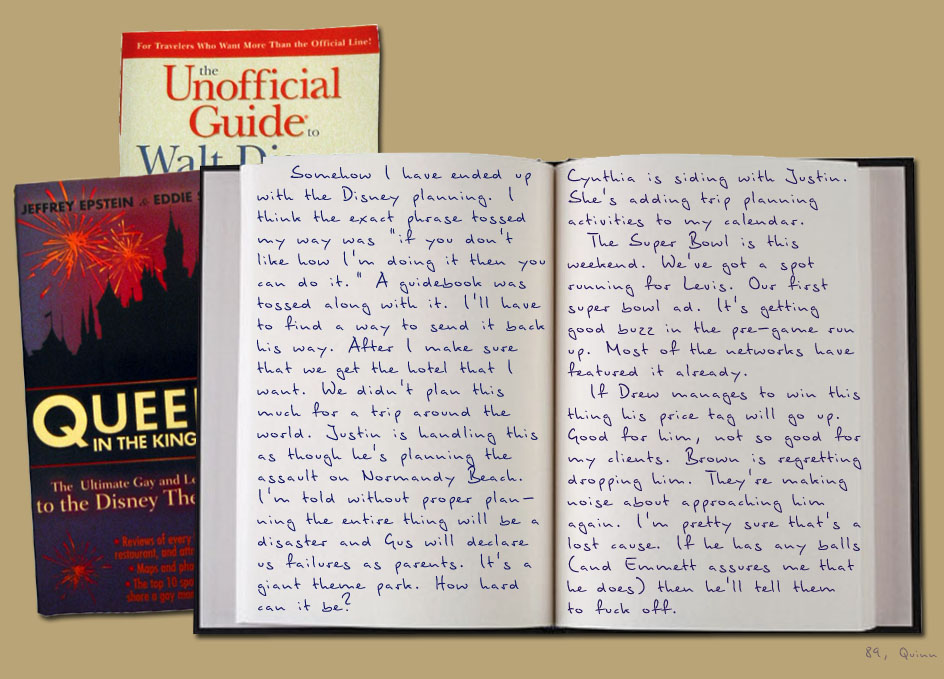 For Travelers Who Want More Than the Official Line!
the
Unofficial
Guide® to
Walt
JEFFREY EPSTEIN & EDDIE
QUEE
IN THE KING
The Ultimate Gay and Le
to the Disney The
• Reviews of every
restaurant, and att
• Maps and pho
• The top 10 spo
share a gay mom
Somehow I have ended up
with the Disney planning. I
think the exact phrase tossed
my way was "if you don't
like how I'm doing it then you
can do it." A guidebook was
tossed along with it. I'll have
to find a way to send it back
his way. After I make sure
that we get the hotel that I
want. We didn't plan this
much for a trip around the
world. Justin is handling this
as though he's planning the
assault on Normandy Beach.
I'm told without proper plan-
ning the entire thing will be a
disaster and Gus will declare
us failures as parents. It's a
giant theme park. How hard
can it be?
Cynthia is siding with Justin.
She's adding trip planning
activities to my calendar.
The Super Bowl is this
weekend. We've got a spot
running for Levis. Our first
super bowl ad. It's getting
good buzz in the pre-game run
up. Most of the networks have
featured it already.
If Drew manages to win this
thing his price tag will go up.
Good for him, not so good for
my clients. Brown is regretting
dropping him. They're making
noise about approaching him
again. I'm pretty sure that's a
lost cause. If he has any balls
(and Emmett assures me that
he does) then he'll tell them
to fuck off.
89, Quinn